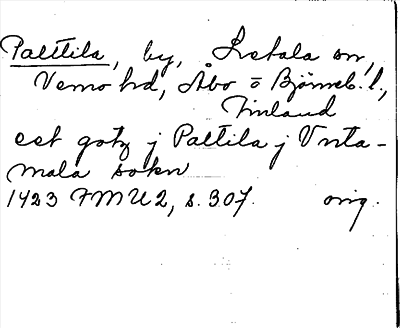 Palttila, by, Letala sn,
Vemo hd, Åbo o Björneb. l.,
Finland
eet gotz j Paltila j Vnta-
mala sokn
1423 FMU 2, s. 307. orig.